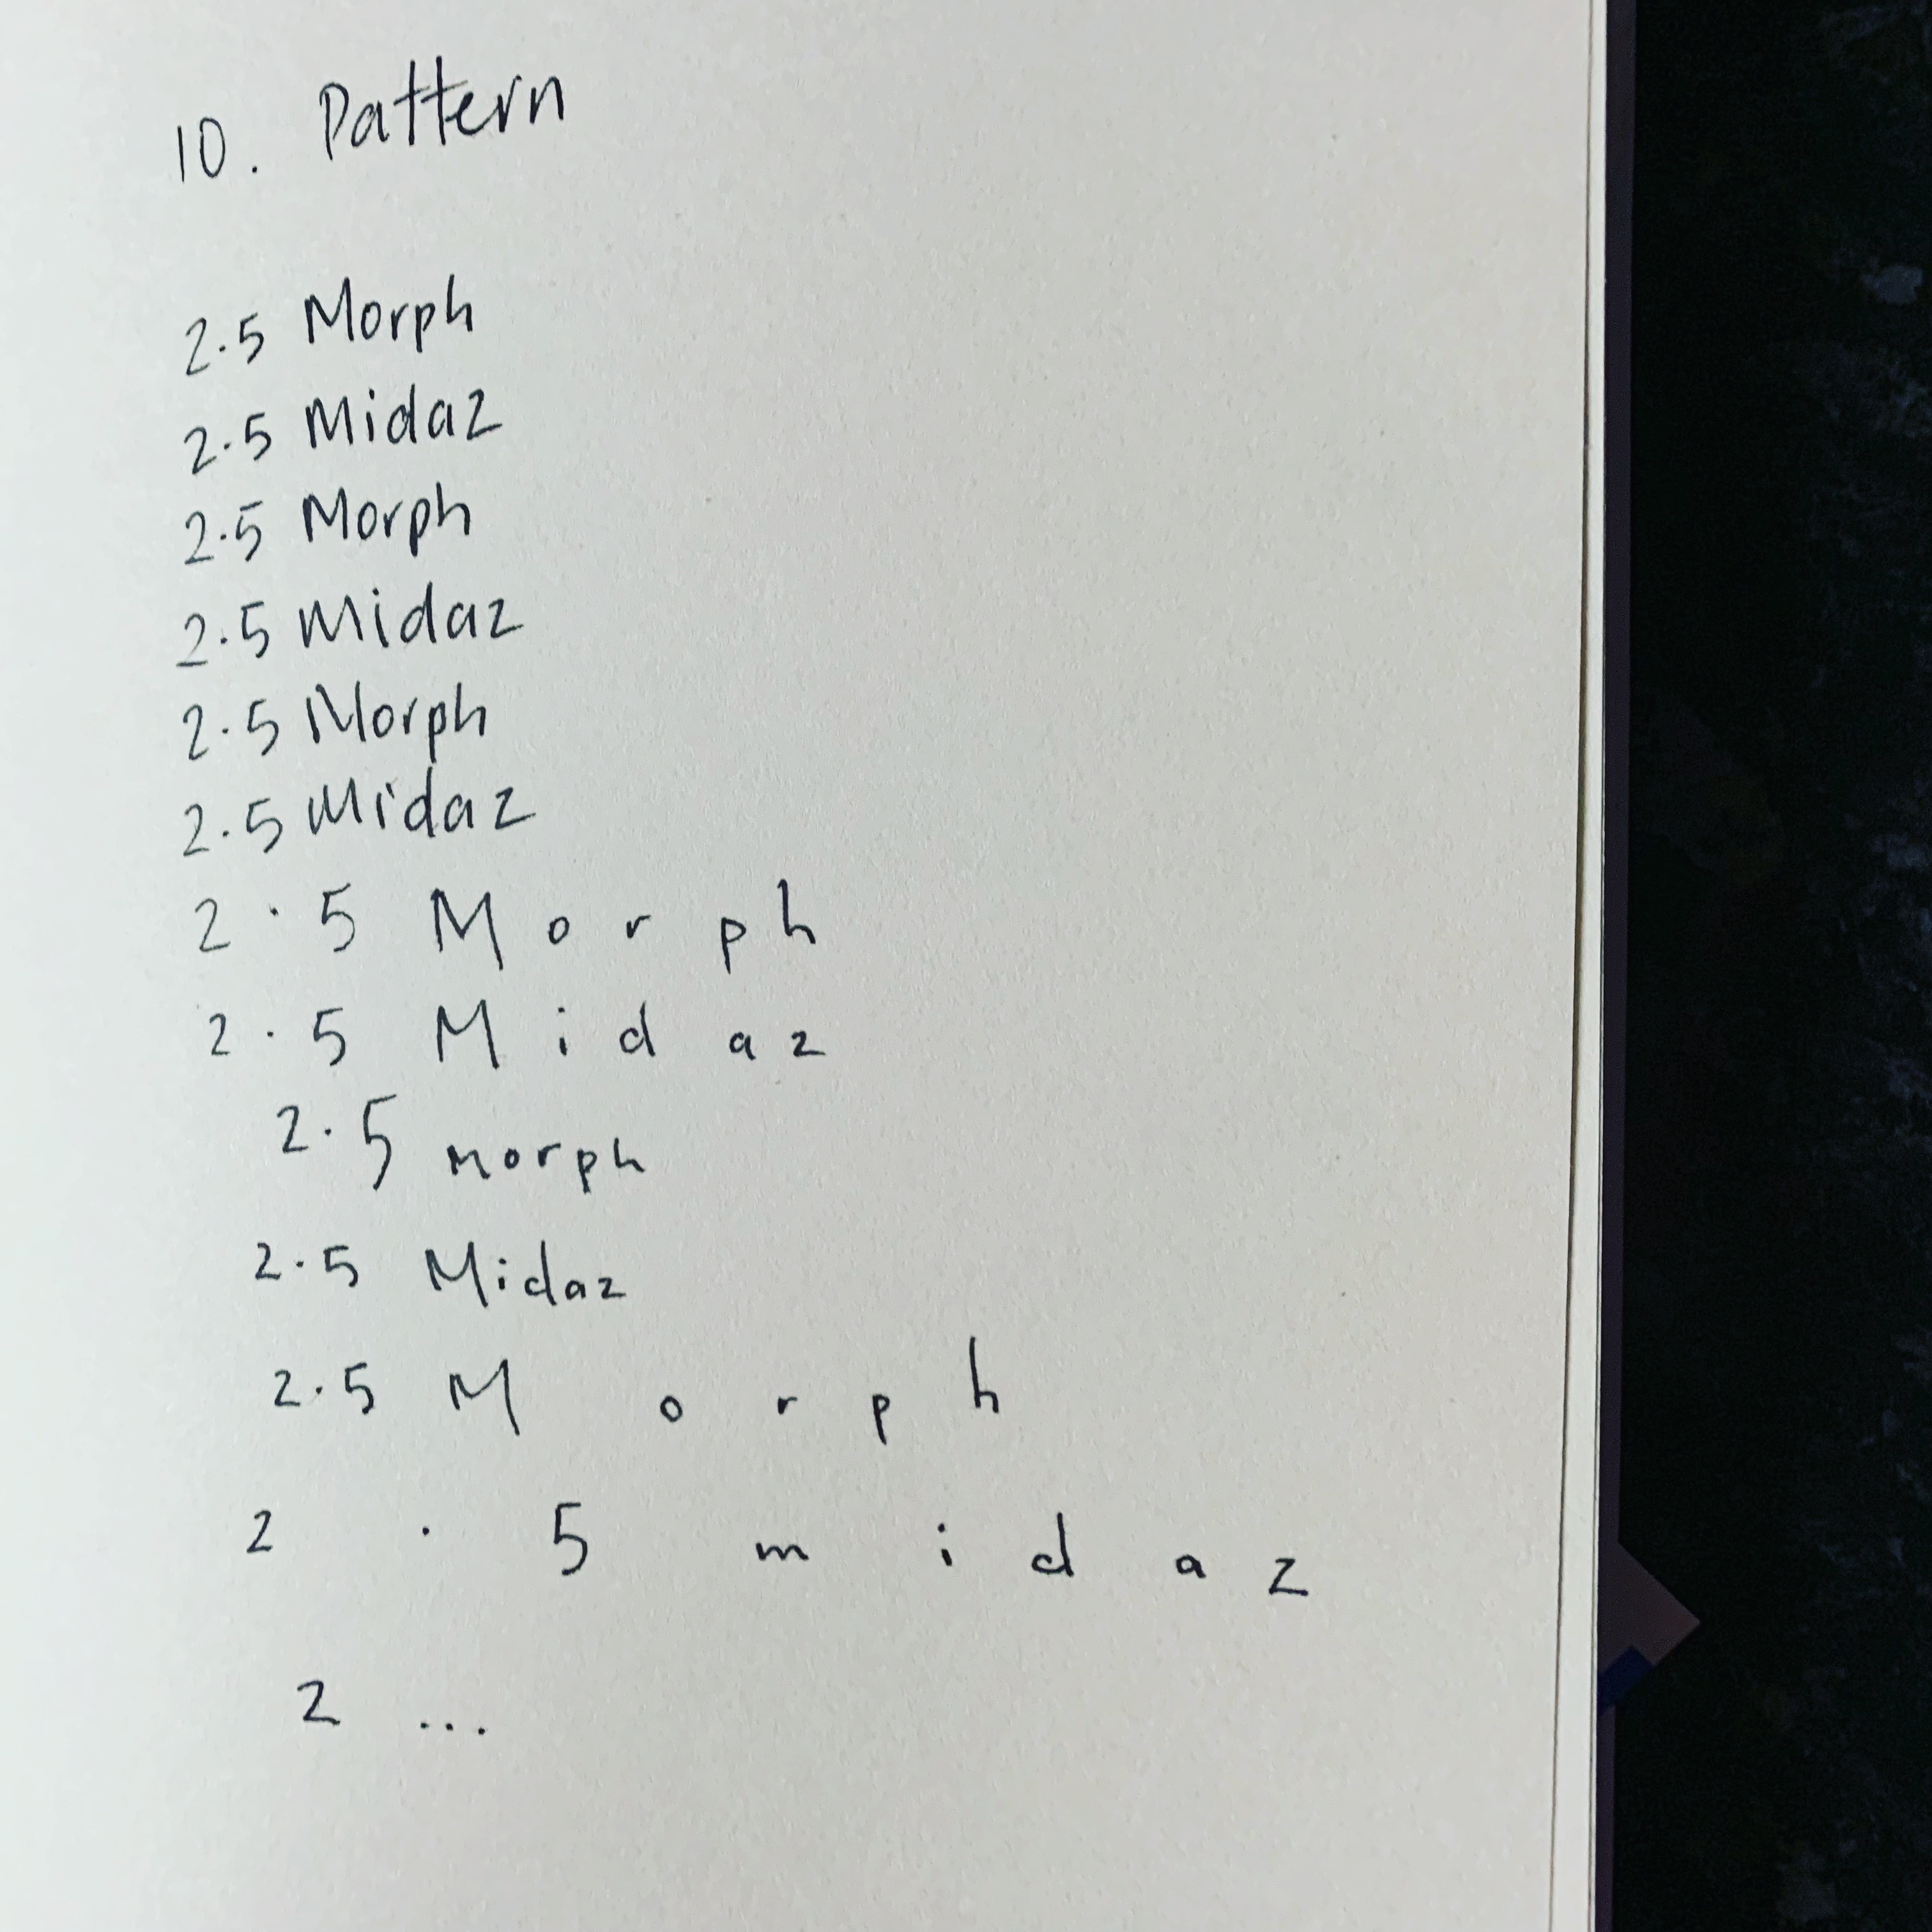 10. Pattern
2.5 Morph
2.5 Midaz
2.5 Morph
2.5 Midaz
2.5 Morph
2.5 Midaz
2 . 5 M o r p h
2 . 5 M i d a z
2.5 morph
2.5 Midaz
2.5 M o r p h
2 . 5 m i d a z
2 ...